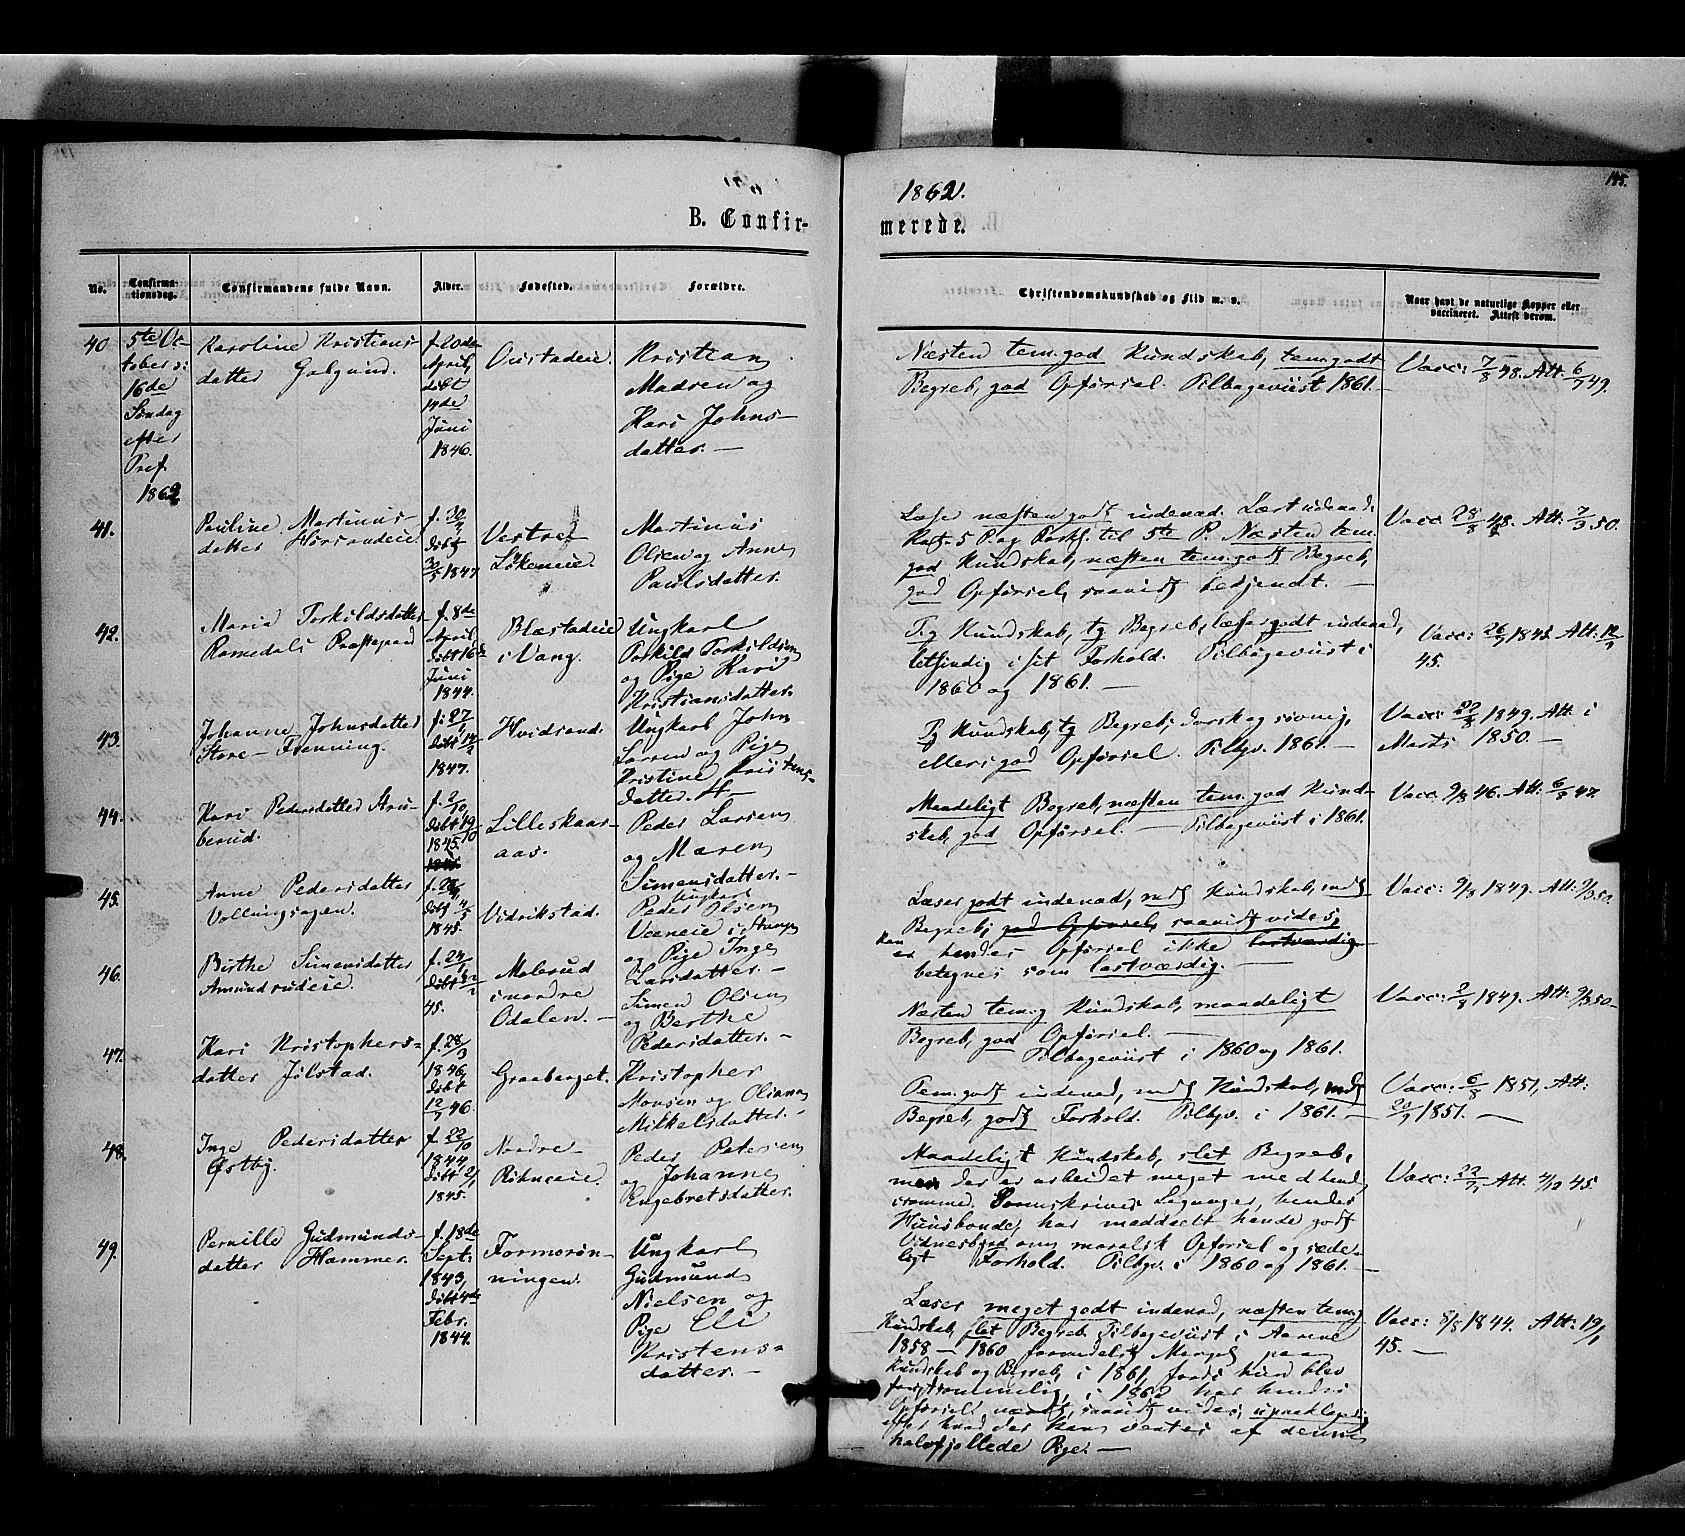 1862.
145.
B. Confir-
merede.
No.
Confirma-
tionsdag.
Confirmandens fulde Navn.
Alder.
Fødested.
Forældre.
Christendomskundskab og Flid m. v.
Naar havt de naturlige Kopper eller
vaccineret. Attest derom.
40
5te Oc-
tober :
16de
Søndag
efter
Pref.
1862
Karoline Kristians-
datter Galgund.
f. 20de
April,
døbt
14de
Juni
1846.
Oustadeie.
Kristian
Madsen og
Kari Johns-
datter. —
Næsten tem. god Kundskab, tem. godt
Begreb, god Opførsel. Tilbageviist 1861. —
Vacc: 7/8 48. Att: 6/7 49.
41.
Pauline Martinus-
datter
f. 30/4
døbt
30/5 1847
Vestre
Løkeneie.
Martinus
Olsen og Anne
Paulsdatter.
Læser næsten godt indenad. Lært udenad
5 P. og Forkl. til 5te P. Næsten tem.
god Kundskab, næsten tem. godt Begreb,
god Opførsel, saavidt bekjendt. —
Vacc 28/8 48. Att: 7/3 50.
42.
Maria Torkildsdatter
Romedals Præstegaard
f. 8de
April
døbt 16de
Juni
1844.
Blæstadeie
i Vang.
Ungkarl
Torkild Torkildsen
og Pige Kari
Kristiansdatter.
T.g. Kundskab, tg Begreb, læser godt indenad,
letsindig i sit Forhold. Tilbageviist i
1860 og 1861. —
Vacc: 26/7 1845 Att: 12/7
45.
43.
Johanne Johnsdatter
Store-Frenning.
f. 27/1
døbt 14/2
1847.
Hvidsand.
Ungkarl John
Larsen og Pige
Kristine Kristens-
datter. —
Tg Kundskab, tg Begreb, dorsk og søvnig,
ellers god Opførsel. Tilbgv. 1861. —
Vacc: 22/8 1849. Att: i
Marts 1850. —
44.
Kari Pedersdatter Stru-
berud.
f. 2/10
døbt 19/10
1845.
Lilleskaar-
aas.
Peder Larsen
og Maren
Simensdatter. —
Maadeligt Begreb, næsten tem. god Kund-
skab, god Opførsel. — Tilbageviist i 1861.
Vacc 9/8 46. Att: 6/7 47.
45.
Anne Pedersdatter
Vollungsagen.
døbt 4/5
1845.
Vidrikstad.
Ungkarl
Peder Olsen
Veeneie i Stange
og Pige Inge
Larsdatter. —
Læser godt indenad, mdl Kundskab, mdl
Begreb, god Opførsel, saavidt vides,
kan
er hendes Opførsel ikke lastværdig
betegnes som lastværdig. —
Vacc: 9/8 1849. Att: 9/3 50.
46.
Birthe Simensdatter
Amundrudeie.
f. 24/1
døbt
45.
Malerud
i nordre
Odalen. —
Simen Olsen
og Berthe
Pedersdatter. —
Næsten tem. g Kundskab, maadeligt
Begreb, god Opførsel. —
Tilbageviist i 1860 og 1861.
Vacc: 2/8 1849. Att: 9/3 50 —
47.
Kari Kristophers-
datter Jølstad.
f. 28/3
1846,
døbt
12/7 46.
Graaberget.
Kristopher
Monsen og Oliana
Mikkelsdatter. —
Tem. godt indenad, mdl Kundskab, mdl
Begreb, godt Forhold. Tilbgv. i 1861. —
Vacc: 6/8 1851, Att:
1851. —
48.
Inge Pedersdatter
Østby.
f. 22/10
1844,
døbt 2/1
1845.
Nordre
Røhneeie.
Peder Petersen
og Johanne
Engebretsdatter.
Maadeligt Kundskab, slet Begreb,
men der er arbeidet meget med hende,
hendes
Huusbonde, har meddeelt hende godt
Vidnesbyrd om moralsk Opførsel og sæde-
ligt Forhold. Tilbgv. i 1860 og 1861. —
Vacc: Att: 4/12 45.
49.
Pernille Gudmunds-
datter Hammer.
f. 18de
Sept:
1843,
døbt 4de
Febr.
1844.
Formorøn-
ningen.
Ungkarl
Gudmund
Nielsen og
Pige Eli
Kristens-
datter. —
Læser meget godt indenad, næsten tem. g
Kundskab, slet Begreb. Tilbageviist i Aarene
1858 — 1860 formedelst Mangel paa
Kundskab og Begreb, i 1861, fordi hun blev
i 1862 har hendes
Opførsel været, saavidt vides, upaaklagelig
efter hvad der kan ventes af denne
halvfjollede Pige. —
Vacc: 5/8 1844. Att: 19/7
45. —